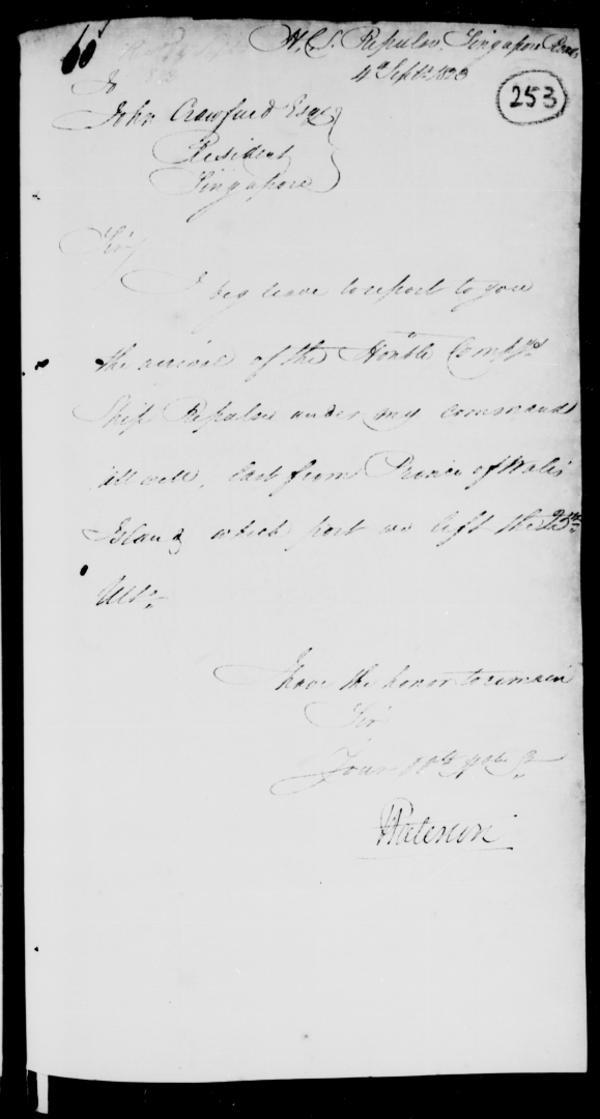 H. C. S. Repulse, Singapore Roads
4th Sept 1823
253
To
John Crawfurd Esqr
Resident
Singapore
Sir
I beg leave to report to you
the arrival of the Honble Compys
Ship Repulse under my command
all well, last from Prince of Wales
Island which port we left the 25th
Ulto
I have the honor to remain
Sir
Your
Paterson